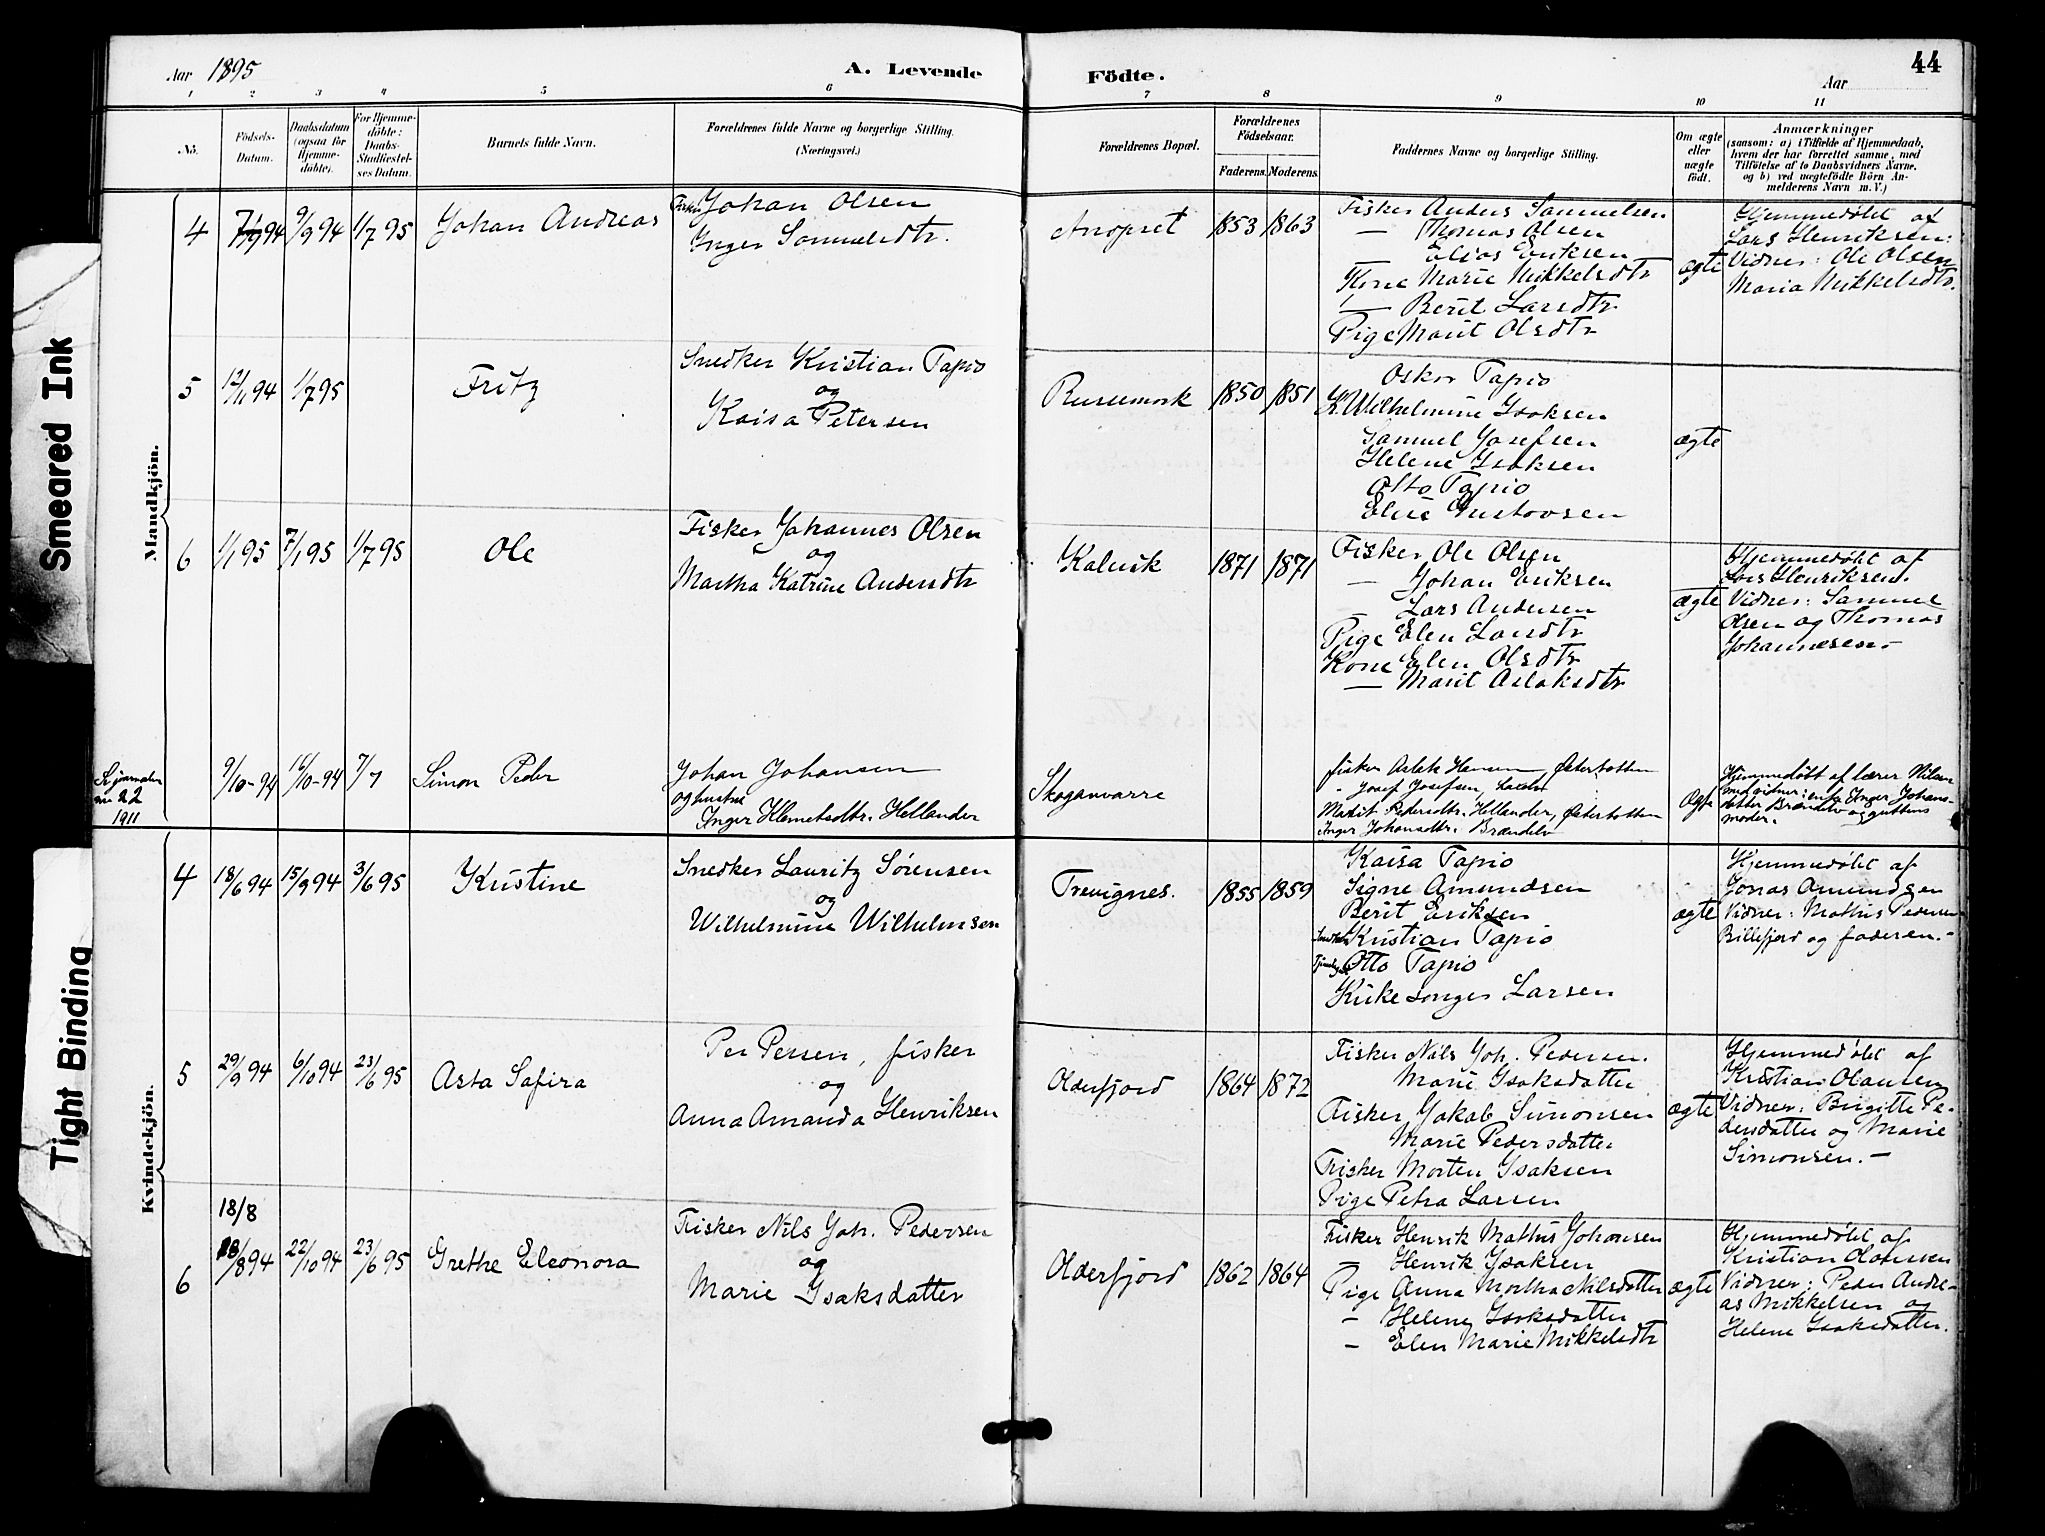 Aar 1895
A. Levende
Födte.
Aar
44
1 2 3 4 5 6 7 8 9 10 11
No.
Födsels-
Datum.
Daabsdatum
(ogsaa for
Hjemme-
döbte).
For Hjemme-
döbte:
Daabs-
Stadfæstel-
ses Datum.
Barnets fulde Navn.
Forældrenes fulde Navne og borgerlige Stilling.
(Næringsvei.)
Forældrenes Bopæl.
Forældrenes
Födselsaar.
Faderens. Moderens.
Faddernes Navne og borgerlige Stilling.
Om ægte
eller
uægte
födt.
Anmærkninger
(saasom: a) i Tilfælde af Hjemmedaab,
hvem der har forrettet samme, med
Tilföielse af to Daabsvidners Navne,
og b) ved uægtefödte Börn An-
melderens Navn m. V.)
Mandkjön.
4
9/9 94
1/7 95
Johan Andreas
Fisker Johan Olsen
Inger Samuelsdtr.
Anopset
1853 1863
Fisker Anders Samuelsen
— Thomas Olsen
— Elias Eriksen
Kone Marie Mikkelsdtr
— Berit Larsdtr
Pige Marit Olsdtr
ægte
Hjemmedøbt af
Lars Henriksen:
Vidner: Ole Olsen
Maria Mikkelsdtr.
5
12/11 94
1/7 95
Fritz
Snedker Kristian Tapio
og
Kaisa Petersen
Russemark
1850 1851
Oskar Tapio
K. Wilhelmine Isaksen
Samuel Josefsen
Helene Isaksen
Otto Tapio
Elise Gustavsen
ægte
6
1/1 95
7/1 95
1/7 95
Ole
Fisker Johannes Olsen
og
Martha Katrine Andersdtr
Kalvik
1871 1871
Fisker Ole Olsen
— Johan Eriksen
— Lars Andersen
Pige Elen Larsdtr
Kone Elen Olsdtr
— Marit Aslaksdtr
ægte
Hjemmedøbt af
Lars Henriksen.
Vidner: Samuel
Olsen og Thomas
Johannesen.-
Se journalen
nr 22
1911
9/10-94
16/10-94
7/7
Simon Peder
Johan Johansen
og hustru
Inger Klemetsdtr. Hellander
Skoganvarre
fisker Aslak Hansen Østerbotten
- Josef Josefsen,
Marit Pedersdtr. Hellander, Østerbotten
Inger Johansdtr. Brændelv
Ægte
Hjemmedøbt af lærer Nilsen
med vidner: enke Inger Johans-
datter Brændelv og guttens
moder.
Kvindekjön.
4
18/6 94
15/9 94
3/6 95
Kristine
Snedker Lauritz Sørensen
og
Wilhelmine Wilhelmsen
Trevignes.
1855 1859
Kaisa Tapio
Signe Amundsen
Berit Eriksen
Snedker Kristian Tapio
Otto Tapio
Kirkesanger Larsen
ægte
Hjemmedøbt af
Jonas Amundsen
Vidner: Mathis Pedersen
Billefjord og faderen.-
5
29/9 94
6/10 94
23/6 95
Asta Safira
Per Persen, fisker
og
Anna Amanda Henriksen
Olderfjord
1864 1872
Fisker Nils Joh. Pedersen.
Marie Isaksdatter
Fisker Jakob Simonsen
Marie Pedersdatter
Fisker Morten Isaksen
Pige Petra Larsen
ægte
Hjemmedøbt af
Kristian Olaussen
Vidner: Birgitte Pe-
dersdatter og Marie
Simonsen.—
6
18/8
18/8 94
22/10 94
23/6 95
Grethe Eleonora
Fisker Nils Joh. Pedersen
og
Marie Isaksdatter
Olderfjord
1862 1864
Fisker Henrik Mathis Johansen
— Henrik Isaksen
Pige Anna Martha Nilsdatter
— Helene Isaksdatter
— Elen Marie Mikkelsdtr
ægte
Hjemmedøbt af
Kristian Olaussen
Vidner: Peder Andre-
as Mikkelsen og
Helene Isaksdatter.
Smeared Ink
Tight Binding